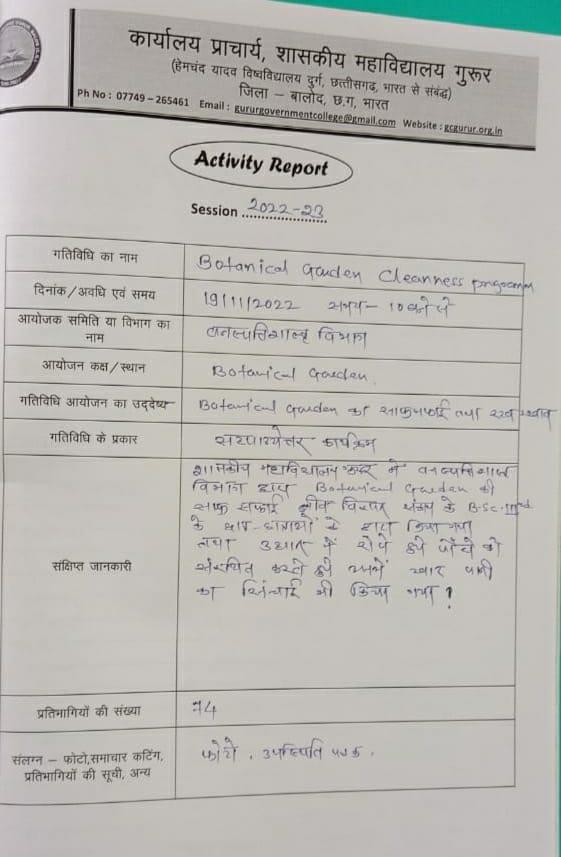 कार्यालय प्राचार्य, शासकीय महाविद्यालय गुरूर
(हेमचंद यादव विश्वविद्यालय दुर्ग, छत्तीसगढ़, भारत से संबंद्ध)
जिला – बालोद, छ.ग, भारत
Ph No : 07749 – 265461 Email : gururgovernmentcollege@gmail.com Website : gcgurur.org.in
Activity Report
Session 2022-23
गतिविधि का नाम
Botanical Garden Cleanness
दिनांक/अवधि एवं समय
19/11/2022 समय- 10
आयोजक समिति या विभाग का
नाम
वनस्पतिशास्त्र विभाग
आयोजन कक्ष/स्थान
Botanical Garden.
गतिविधि आयोजन का उद्देष्य
Botanical Garden का साफसफाई तथा रख रखाव
गतिविधि के प्रकार
कार्यक्रम
संक्षिप्त जानकारी
शासकीय महाविद्यालय गुरूर में वनस्पतिशास्त्र
विभाग द्वारा Botanical Garden की
साफ सफाई के B.Sc.
के छात्र-छात्राओं के द्वारा किया गया
तथा उद्यान में रोपे हुये पौधो को
करते हुये उसमें खाद पानी
का सिंचाई भी किया गया
प्रतिभागियों की संख्या
74
संलग्न – फोटो,समाचार कटिंग,
प्रतिभागियों की सूची, अन्य
फोटो, उपस्थिति पत्रक.